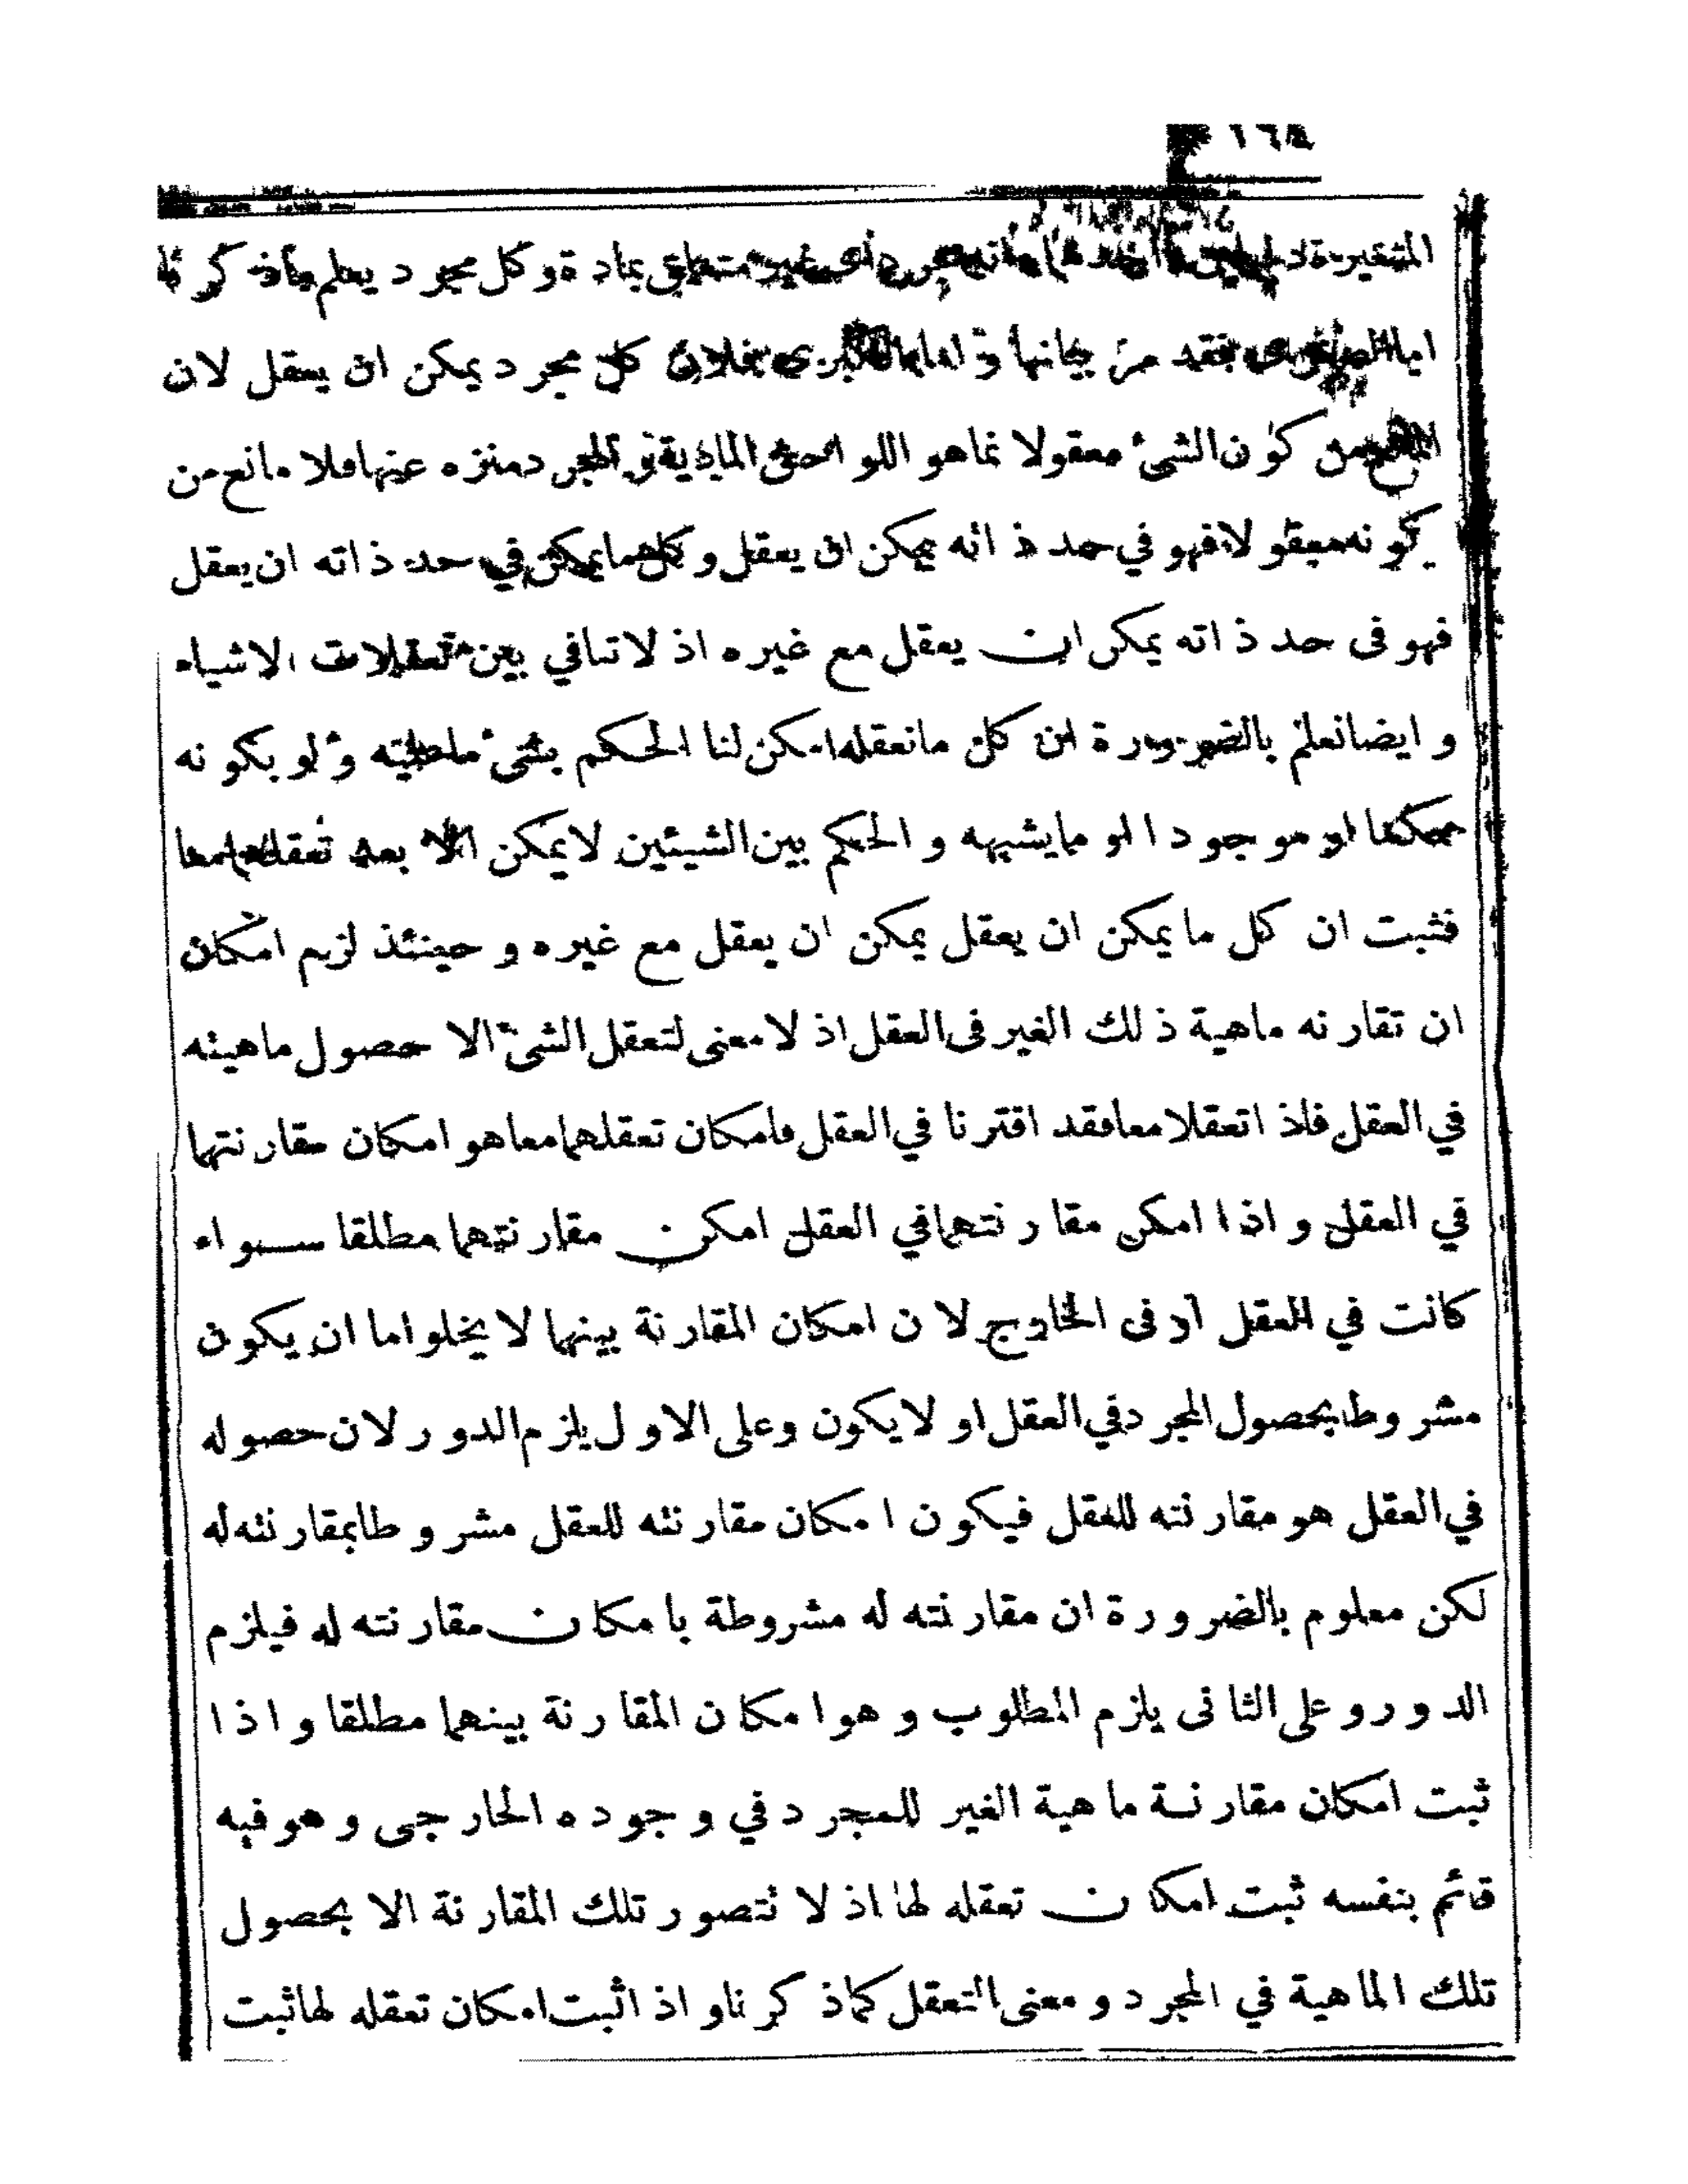 ١٦٥
المتغيرة د مجرد أى غير متعلق بمادة وكل مجرد يعلم ماذكرنا
اما الصغرى فقد مر بيانها و اما الكبرى فلان كل مجرد يمكن ان يعقل لان
المانع من كون الشئ معقولا نما هو اللواحق المادية و المجرد منزه عنها فلا مانع من
كونه معقولا فهو في حد ذاته يمكن ان يعقل وكل ما يمكن في حد ذاته ان يعقل
فهو فى حد ذاته يمكن ان يعقل مع غيره اذ لا تنافي بين تعقلات الاشياء
و ايضا نعلم بالضرورة ان كل ما نعقله امكن لنا الحكم بشئ ما عليه و لو بكونه
ممكنا او موجودا او ما يشبهه و الحكم بين الشيئين لا يمكن الا بعد تعقلهما معا
فثبت ان كل ما يمكن ان يعقل يمكن ان يعقل مع غيره و حينئذ لزم امكان
ان تقارنه ماهية ذلك الغير فى العقل اذ لا معنى لتعقل الشئ الا حصول ماهيته
في العقل فاذ اتعقلا معا فقد اقترنا في العقل فامكان تعقلهما معا هو امكان مقارنتهما
في العقل و اذا امكن مقارنتهما في العقل امكن مقارنتهما مطلقا سواء
كانت في العقل او فى الخارج لان امكان المقارنة بينهما لا يخلو اما ان يكون
مشروطا بحصول المجرد في العقل او لا يكون وعلى الاول يلزم الدور لان حصوله
في العقل هو مقارنته للعقل فيكون امكان مقارنته للعقل مشروطا بمقارنته له
لكن معلوم بالضرورة ان مقارنته له مشروطة بامكان مقارنته له فيلزم
الدور و على الثانى يلزم المطلوب و هو امكان المقارنة بينهما مطلقا و اذا
ثبت امكان مقارنة ماهية الغير للمجرد في وجوده الخارجى و هو فيه
قائم بنفسه ثبت امكان تعقله لها اذ لا تتصور تلك المقارنة الا بحصول
تلك الماهية في المجرد و معنى التعقل كماذكرنا و اذ اثبت امكان تعقله لها ثبت